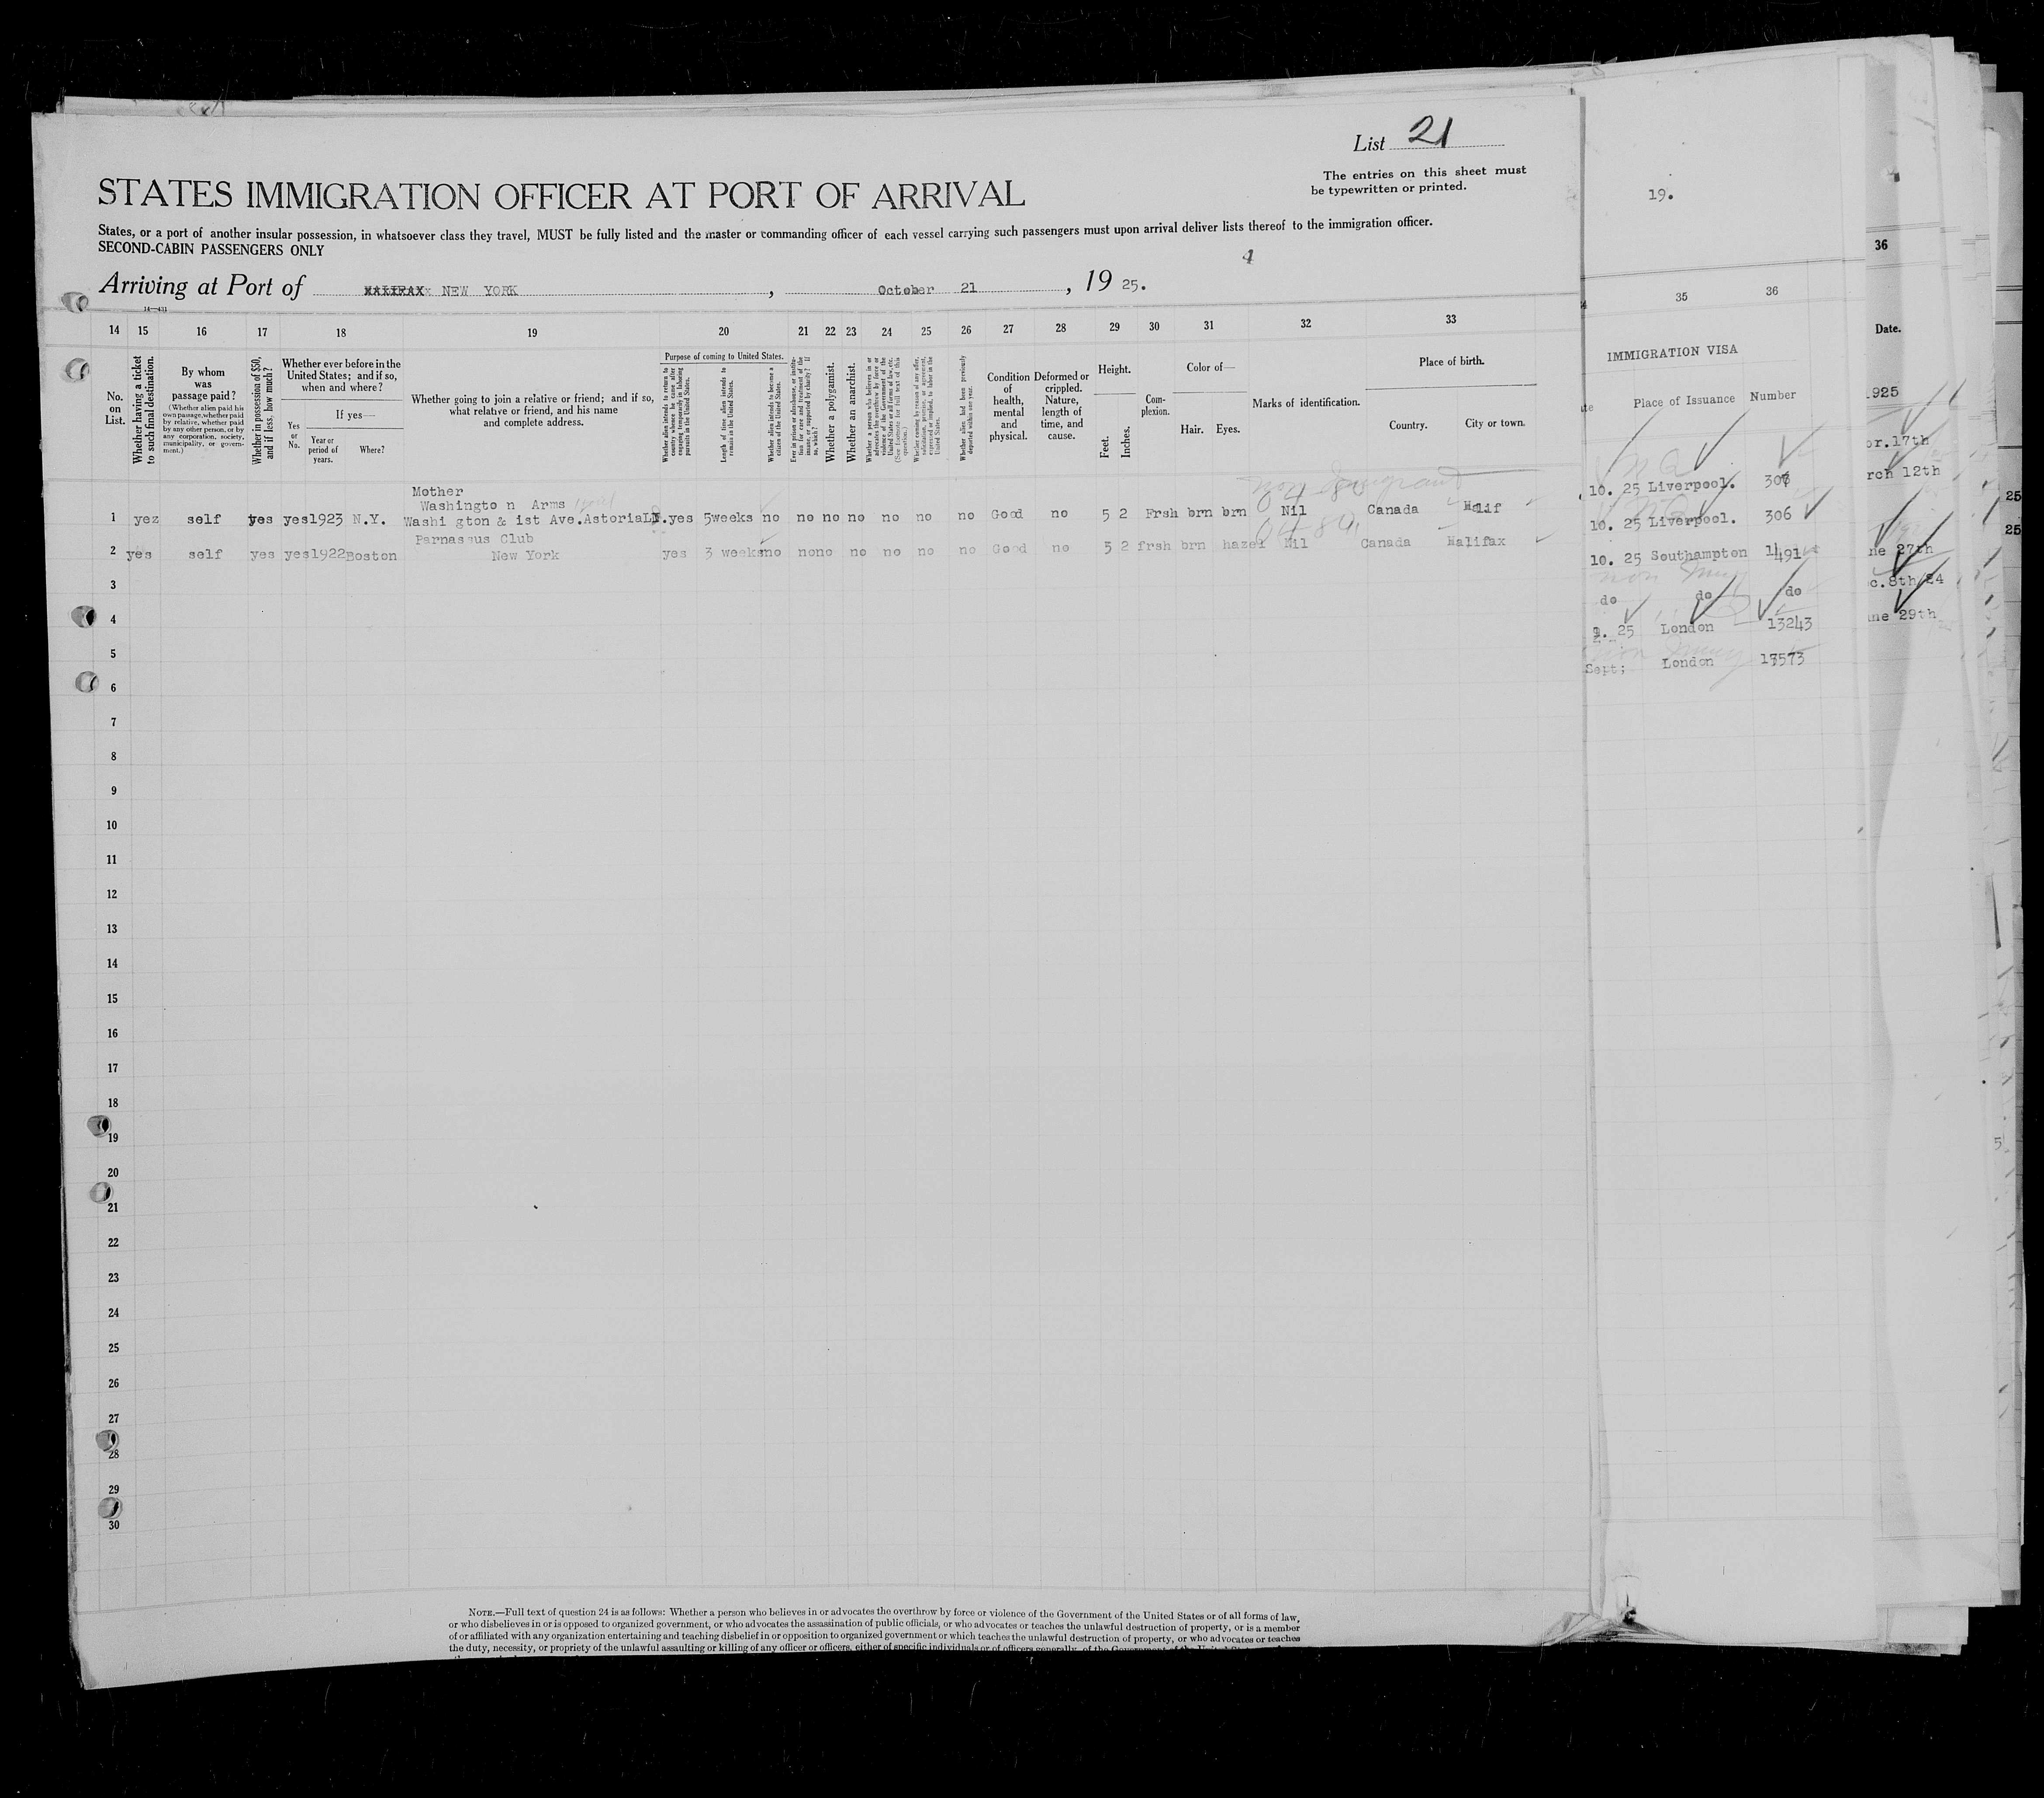 List 21
The entries on this sheet must
be typewritten or printed.
STATES IMMIGRATION OFFICER AT PORT OF ARRIVAL
States, or a port of another insular possession, in whatsoever class they travel, MUST be fully listed and the master or commanding officer of each vessel carrying such passengers must upon arrival deliver lists thereof to the immigration officer.
SECOND-CABIN PASSENGERS ONLY
Arriving at Port of HALIFAX NEW YORK, October 21, 1925.
14 15 16 17 18 19 20 21 22 23 24 25 26 27 28 29 30 31 32 33
No. on List.
Whether having a ticket to such final destination.
By whom was passage paid?
(Whether alien paid his own passage, whether paid by relative, whether paid by any other person, or by any corporation, society, municipality, or government.)
Whether in possession of $50, and if less, how much?
Whether ever before in the United States; and if so, when and where?
If yes—
Yes or No.
Year or period of years.
Where?
Whether going to join a relative or friend; and if so, what relative or friend, and his name and complete address.
Purpose of coming to United States.
Whether alien intends to return to country whence he came after engaging temporarily in laboring pursuits in the United States.
Length of time alien intends to remain in the United States.
Whether alien intends to become a citizen of the United States.
Ever in prison or almshouse, or institution for care and treatment of the insane, or supported by charity? If so, which?
Whether a polygamist.
Whether an anarchist.
Whether a person who believes in or advocates the overthrow by force or violence of the Government of the United States or all forms of law, etc. (See footnote for full text of this question.)
Whether coming by reason of any offer, solicitation, promise, or agreement, expressed or implied, to labor in the United States.
Whether alien had been previously deported within one year.
Condition of health, mental and physical.
Deformed or crippled. Nature, length of time, and cause.
Height.
Feet. Inches.
Complexion.
Color of—
Hair. Eyes.
Marks of identification.
Place of birth.
Country. City or town.
Mother
Washingto n Arms
1 yez self yes yes1923 N.Y. Washi gton & ist Ave.AstoriaLI.yes 5weeks no no no no no no no Good no 5 2 Frsh brn brn Nil Canada Halif
Parnassus Club
2 yes self yes yes1922Boston New York yes 3 weeksno nono no no no no Good no 5 2 frsh brn hazel Nil Canada Halifax
3
4
5
6
7
8
9
10
11
12
13
14
15
16
17
18
19
20
21
22
23
24
25
26
27
28
29
30
NOTE.—Full text of question 24 is as follows: Whether a person who believes in or advocates the overthrow by force or violence of the Government of the United States or of all forms of law,
or who disbelieves in or is opposed to organized government, or who advocates the assassination of public officials, or who advocates or teaches the unlawful destruction of property, or is a member
of or affiliated with any organization entertaining and teaching disbelief in or opposition to organized government or which teaches the unlawful destruction of property, or who advocates or teaches
the duty, necessity, or propriety of the unlawful assaulting or killing of any officer or officers, either of specific individuals or of officers generally, of the Government of the United States
19.
35 36
IMMIGRATION VISA
Place of Issuance Number
10. 25 Liverpool.
10. 25 Liverpool. 306
10. 25 Southampton 1491
do do do
25 London 13243
Sept; London 17573
36
Date.
925
or.17th
rch 12th
ne 27th
c.8th/24
ne 29th
25
25
5